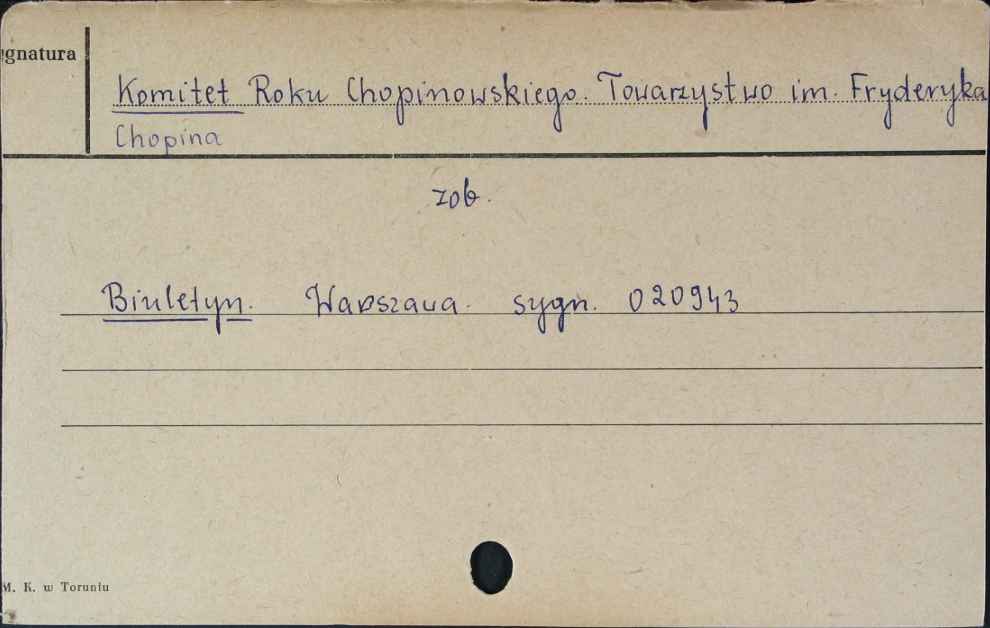 ygnatura
Komitet Roku Chopinowskiego. Towarzystwo im. Fryderyka
Chopina
zob.
Biuletyn. Warszawa. sygn. 020943
M. K. w Toruniu